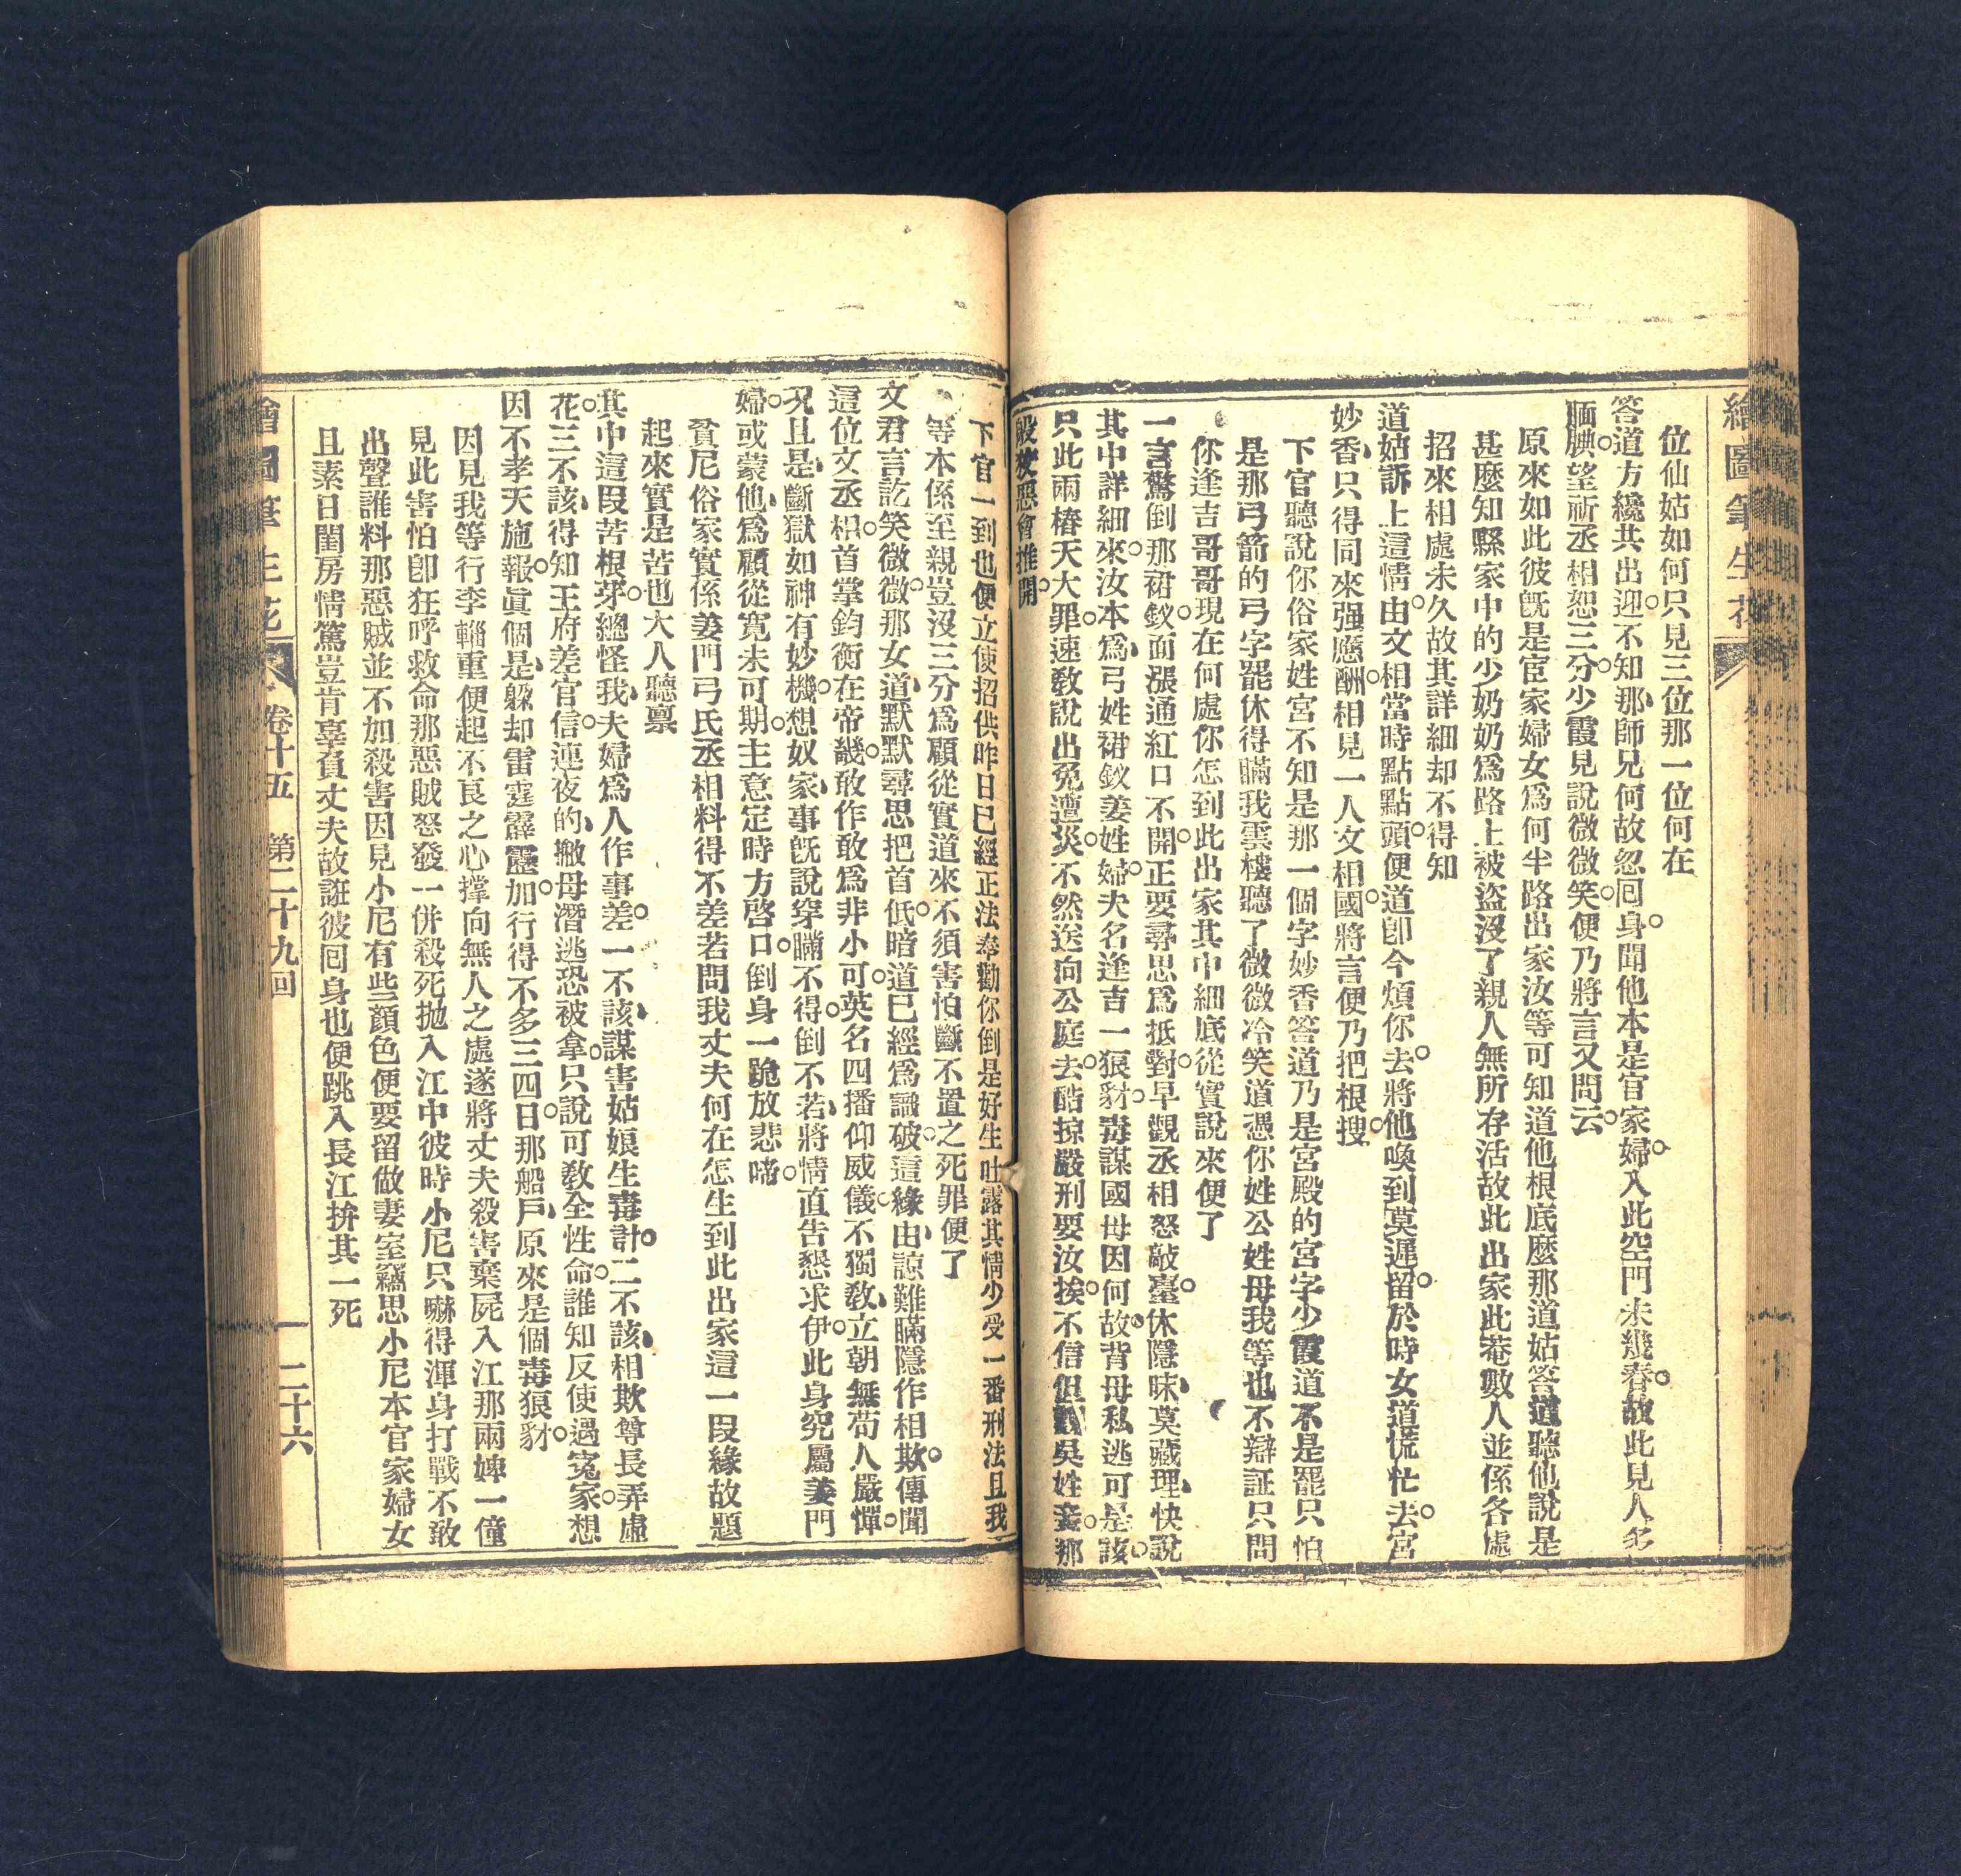 繪圖筆生花
位仙姑如何只見三位那一位何在
答道方纔共出迎。不知那師兄何故忽囘身。聞他本是官家婦。入此空門未幾春。故此見人多
腼腆。望祈丞相恕三分。少霞見說微微笑。便乃將言又問云。
原來如此彼旣是宦家婦女爲何半路出家汝等可知道他根底麼那道姑答道聽他說是
甚麼知縣家中的少奶奶爲路上被盜沒了親人無所存活故此出家此菴數人並係各處
招來相處未久故其詳細却不得知
道姑訴上這情由。文相當時點點頭。便道卽今煩你去。將他喚到莫遲留。於時女道慌忙去。宮
妙香只得同來强應酬。相見一人文相國。將言便乃把根搜。
下官聽說你俗家姓宮不知是那一個字妙香答道乃是宮殿的宮字少霞道不是罷只怕
是那弓箭的弓字罷休得瞞我雲樓聽了微微冷笑道憑你姓公姓母我等也不辯証只問
你逢吉哥哥現在何處你怎到此出家其中細底從實說來便了
一言驚倒那裙釵。面漲通紅口不開。正要尋思爲抵對。早觀丞相怒敲臺。休隱昧莫藏理快說
其中詳細來。汝本爲弓姓裙釵姜姓婦。夫名逢吉一狼豺。毒謀國母因何故。背母私逃可是該。
只此兩樁天大罪。速敎說出免遭災。不然送向公庭去。酷掠嚴刑要汝挨。不信但觀吳姓妾。那
般狡惡會推開。
下官一到也便立使招供昨日已經正法奉勸你倒是好生吐露其情少受一番刑法且我
等本係至親豈沒三分爲顧從實道來不須害怕斷不置之死罪便了
文君言訖笑微微。那女道默默尋思把首低。暗道已經爲識破。這緣由諒難瞞隱作相欺。傳聞
這位文丞相。首掌鈞衡在帝畿。敢作敢爲非小可。英名四播仰威儀。不獨敎立朝無苟人嚴憚。
况且是斷獄如神有妙機。想奴家事旣說穿瞞不得。倒不若將情直告懇求伊。此身究屬姜門
婦。或蒙他爲顧從寬未可期。主意定時方啓口。倒身一跪放悲啼。
貧尼俗家實係姜門弓氏丞相料得不差若問我丈夫何在怎生到此出家這一段緣故題
起來實是苦也大人聽禀
其中這段苦根芽。總怪我夫婦爲人作事差。一不該謀害姑娘生毒計。二不該相欺尊長弄虛
花。三不該得知王府差官信。連夜的撇母潛逃恐被拿。只說可敎全性命。誰知反使遇寃家。想
因不孝天施報。眞個是躱却雷霆霹靂加。行得不多三四日。那船戶原來是個毒狼豺。
因見我等行李輜重便起不良之心撑向無人之處遂將丈夫殺害棄屍入江那兩婢一僮
見此害怕卽狂呼救命那惡賊怒發一併殺死抛入江中彼時小尼只嚇得渾身打戰不敢
出聲誰料那惡賊並不加殺害因見小尼有些顔色便要留做妻室竊思小尼本官家婦女
且素日閨房情篤豈肯辜負丈夫故誑彼囘身也便跳入長江拚其一死
繪圖筆生花 卷十五 第二十九回 二十六